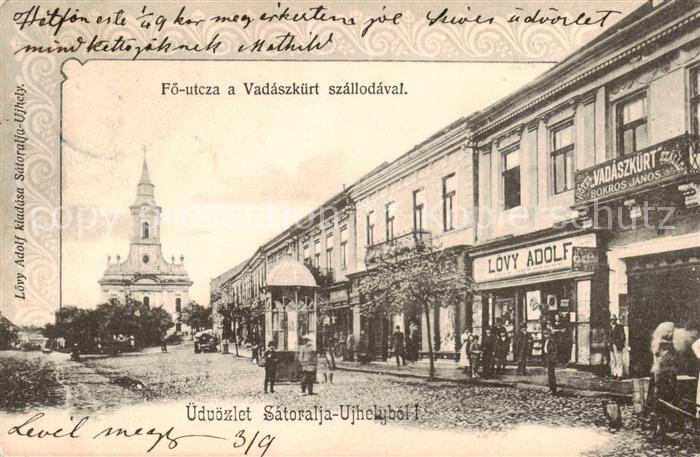 Hétfőn este 1/4 9 kor megérkeztem jól. Szives üdvözlet
mindkettőjüknek Mathild
Fő-utcza a Vadászkürt szállodával.
Lővy Adolf kiadása Sátoralja-Ujhely.
VADÁSZKÜRT
BOKROS JÁNOS
LŐVY ADOLF
Üdvözlet Sátoralja-Ujhelyből!
Levél megy 3/9